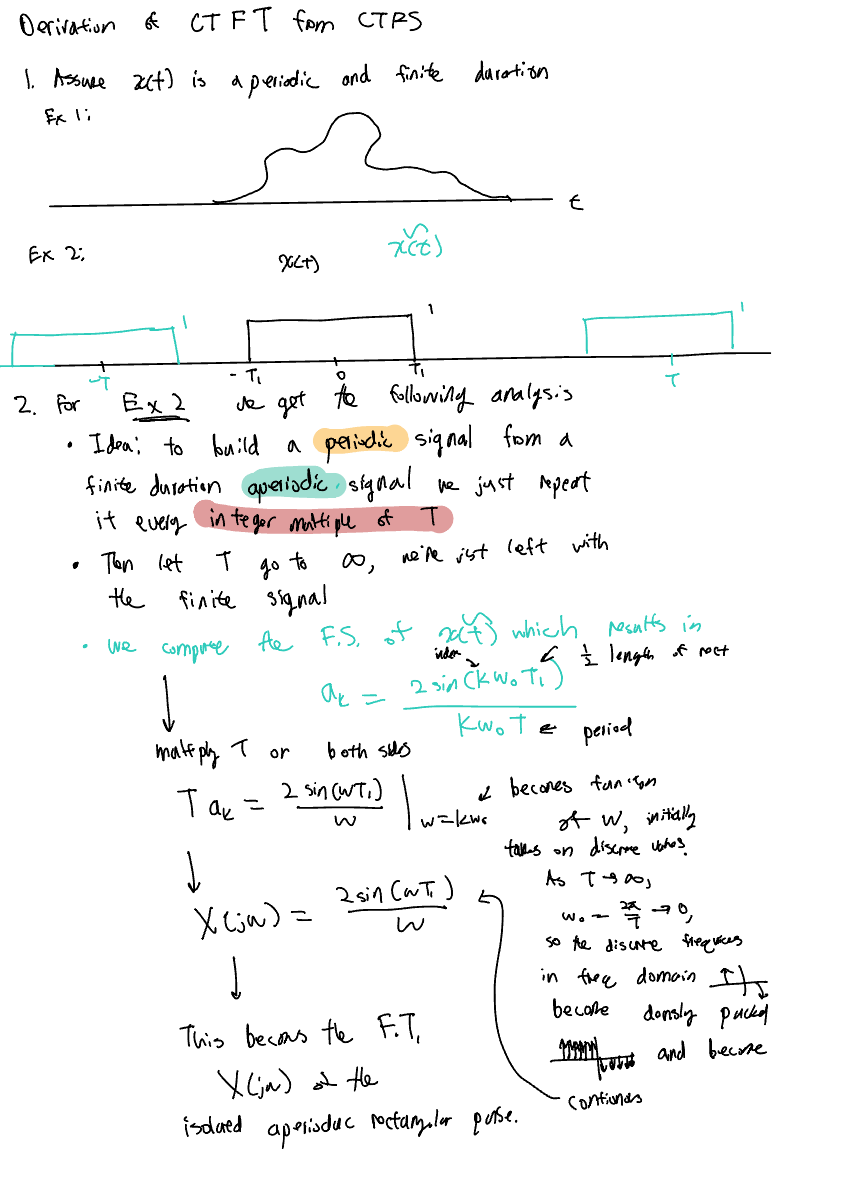 Derivation of CTFT from CTFS
1. Assume x(t) is aperiodic and finite duration
Ex 1:
t
Ex 2:
x(t)
x̃(t)
1
1
1
-T
-T₁
0
T₁
T
2. For Ex 2 we get the following analysis
• Idea: to build a periodic signal from a
finite duration aperiodic signal we just repeat
it every integer multiple of T
• Then let T go to ∞, we're just left with
the finite signal
• we compute the F.S. of x̃(t) which results in
index
½ length of rect
aₖ = 2 sin(kω₀T₁) / kω₀T ← period
multiply T on both sides
T aₖ = 2 sin(ωT₁) / ω | ω=kω₀
↙ becomes function
of ω, initially
takes on discrete values.
As T → ∞,
ω₀ = 2π/T → 0,
so the discrete frequencies
in freq domain
become densly packed
and become
continuous
X(jω) = 2 sin(ωT₁) / ω
This becomes the F.T.
X(jω) of the
isolated aperiodic rectangular pulse.